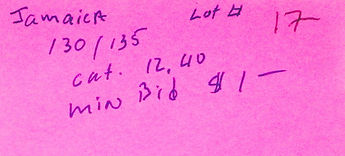 Jamaica Lot # 17
130/135
cat. 12.40
min Bid $1—